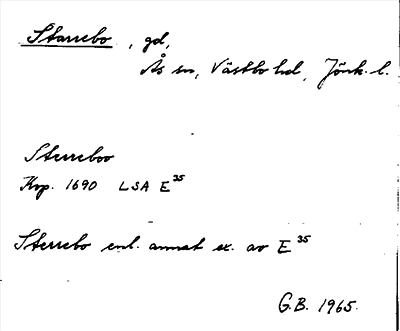 Starrebo, gd,
Ås sn, Västbo hd, Jönk. l.
Sterreboo
Krp. 1690 LSA E 35
Sterrebo enl. annat ex. av E 35
G.B. 1965.